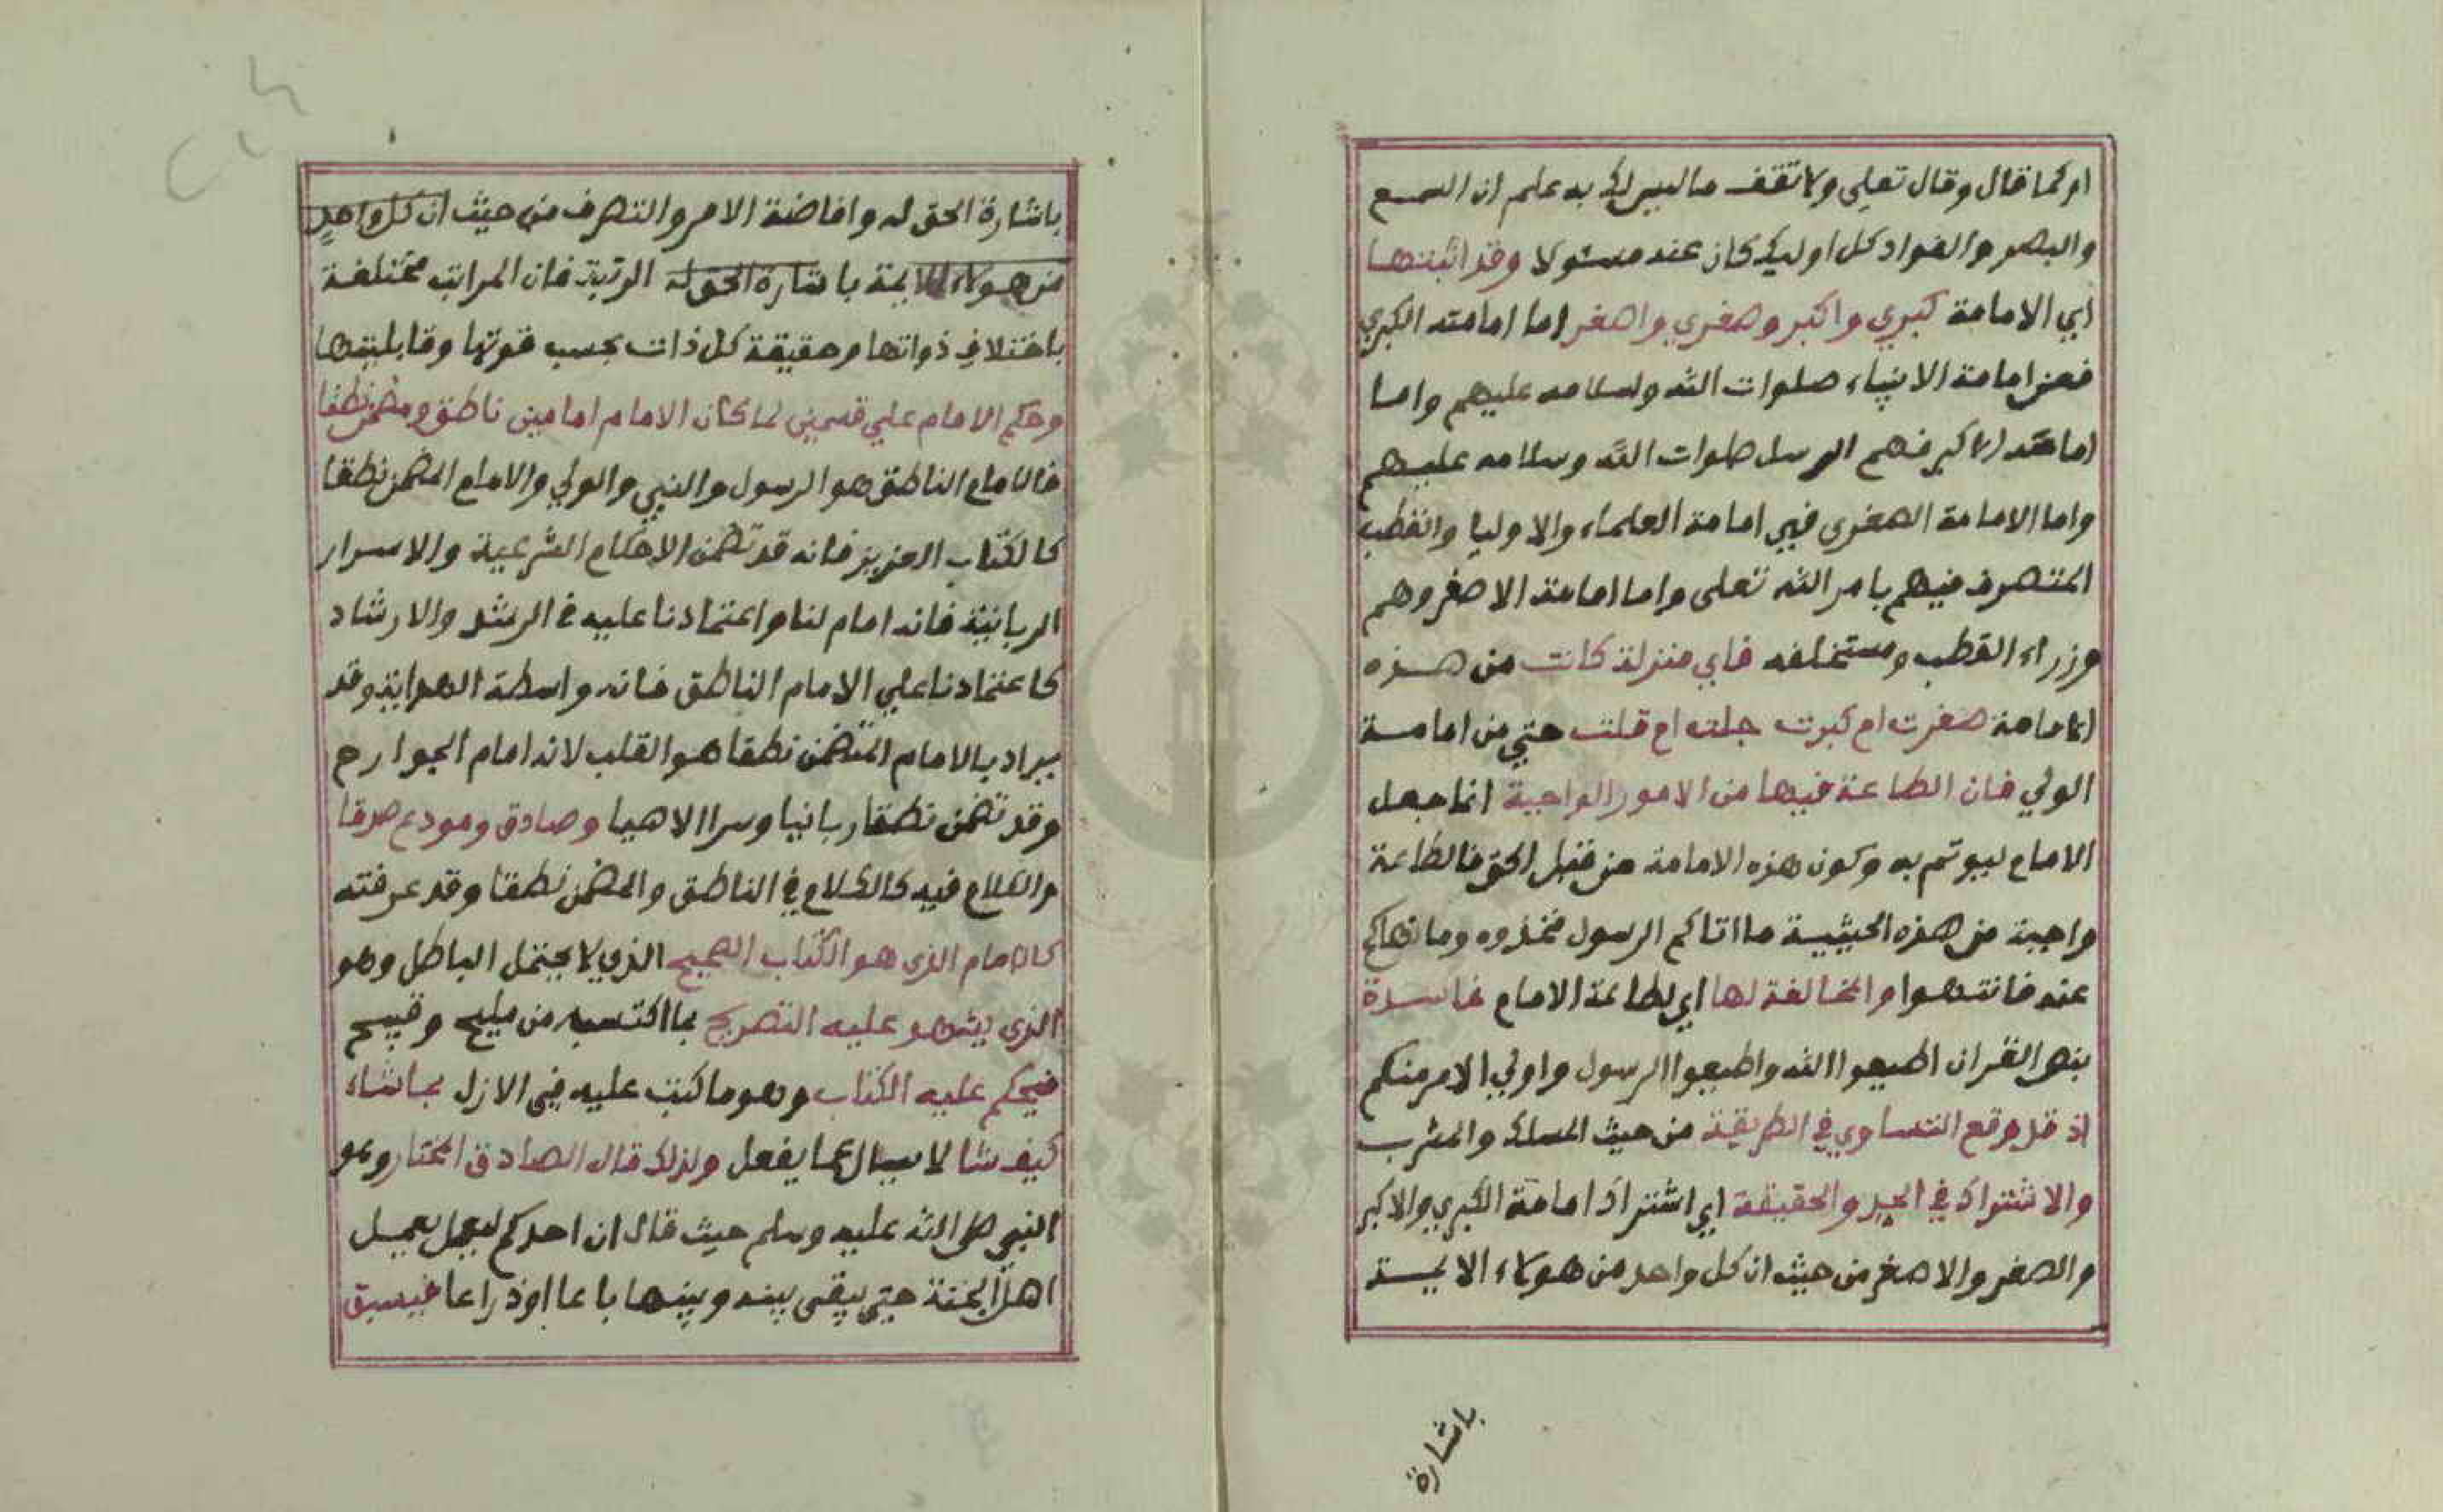 او كما قال وقال تعلى ولا تقف ما ليس لك به علم ان السمع
والبصر والفواد كل اوليك كان عنه مسئولا وقد اثبتها
اي الامامة كبرى واكبر وصغرى واصغر اما امامته الكبرى
فعن امامة الانبياء صلوات الله وسلامه عليهم واما
امامته الاكبر فهم الرسل صلوات الله وسلامه عليهم
واما الامامة الصغرى فهي امامة العلماء والاوليا والقطب
المتصرف فيهم بامر الله تعلى واما امامة الاصغر وهم
وزراء القطب ومستخلفه فاي منزلة كانت من هذه
الامامة صغرت ام كبرت جلت ام قلت حتي من امامة
الولي فان الطاعة فيها من الامور الواجبة انما جعل
الامام ليوتم به وكون هذه الامامة من قبل الحق فالطاعة
واجبة من هذه الحيثية ما اتاكم الرسول فخذوه وما نهاكم
عنه فانتهوا والمخالفة لها اي لطاعة الامام فاسدة
بنص القران اطيعوا الله واطيعوا الرسول واولي الامر منكم
اذ قد وقع التساوي في الطريقة من حيث المسلك والمشرب
والاشتراك في الحد والحقيقة اي اشتراك امامة الكبرى والاكبر
والصغر والاصغر من حيث ان كل واحد من هولاء الايمة
باشارة
باشارة الحق له وافاضة الامر والتصرف من حيث ان كل واحد
من هولاء الايمة باشارة الحق له الرتبة فان المراتب مختلفة
باختلاف ذواتها وحقيقة كل ذات بحسب قوتها وقابليتها
وحكم الامام علي قسمين لما كان الامام امامين ناطق ومضمن نطقا
فالامام الناطق هو الرسول والنبي والولي والامام المضمن نطقا
كالكتاب العزيز فانه قد تضمن الاحكام الشرعية والاسرار
الربانية فانه امام لنا واعتمادنا عليه في الرشد والارشاد
كاعتمادنا علي الامام الناطق فانه واسطة الهداية وقد
يراد بالامام المتضمن نطقا هو القلب لانه امام الجوارح
وقد تضمن نطقا ربانيا وسرا الاهيا وصادق ومودع صدقا
والكلام فيه كالكلام في الناطق والمضمن نطقا وقد عرفته
كالامام الذي هو الكتاب الصحيح الذي لا يحتمل الباطل وهو
الذي يشهد عليه التصريح بما اكتسبه من مليح وقبيح
فيحكم عليه الكتاب وهو ما كتب عليه في الازل بما شاء
كيف شا لا يسال عما يفعل ولذلك قال الصادق المختار وهو
النبي صلى الله عليه وسلم حيث قال ان احدكم ليعمل بعمل
اهل الجنة حتي يبقى بينه وبينها باعا او ذراعا فيسبق